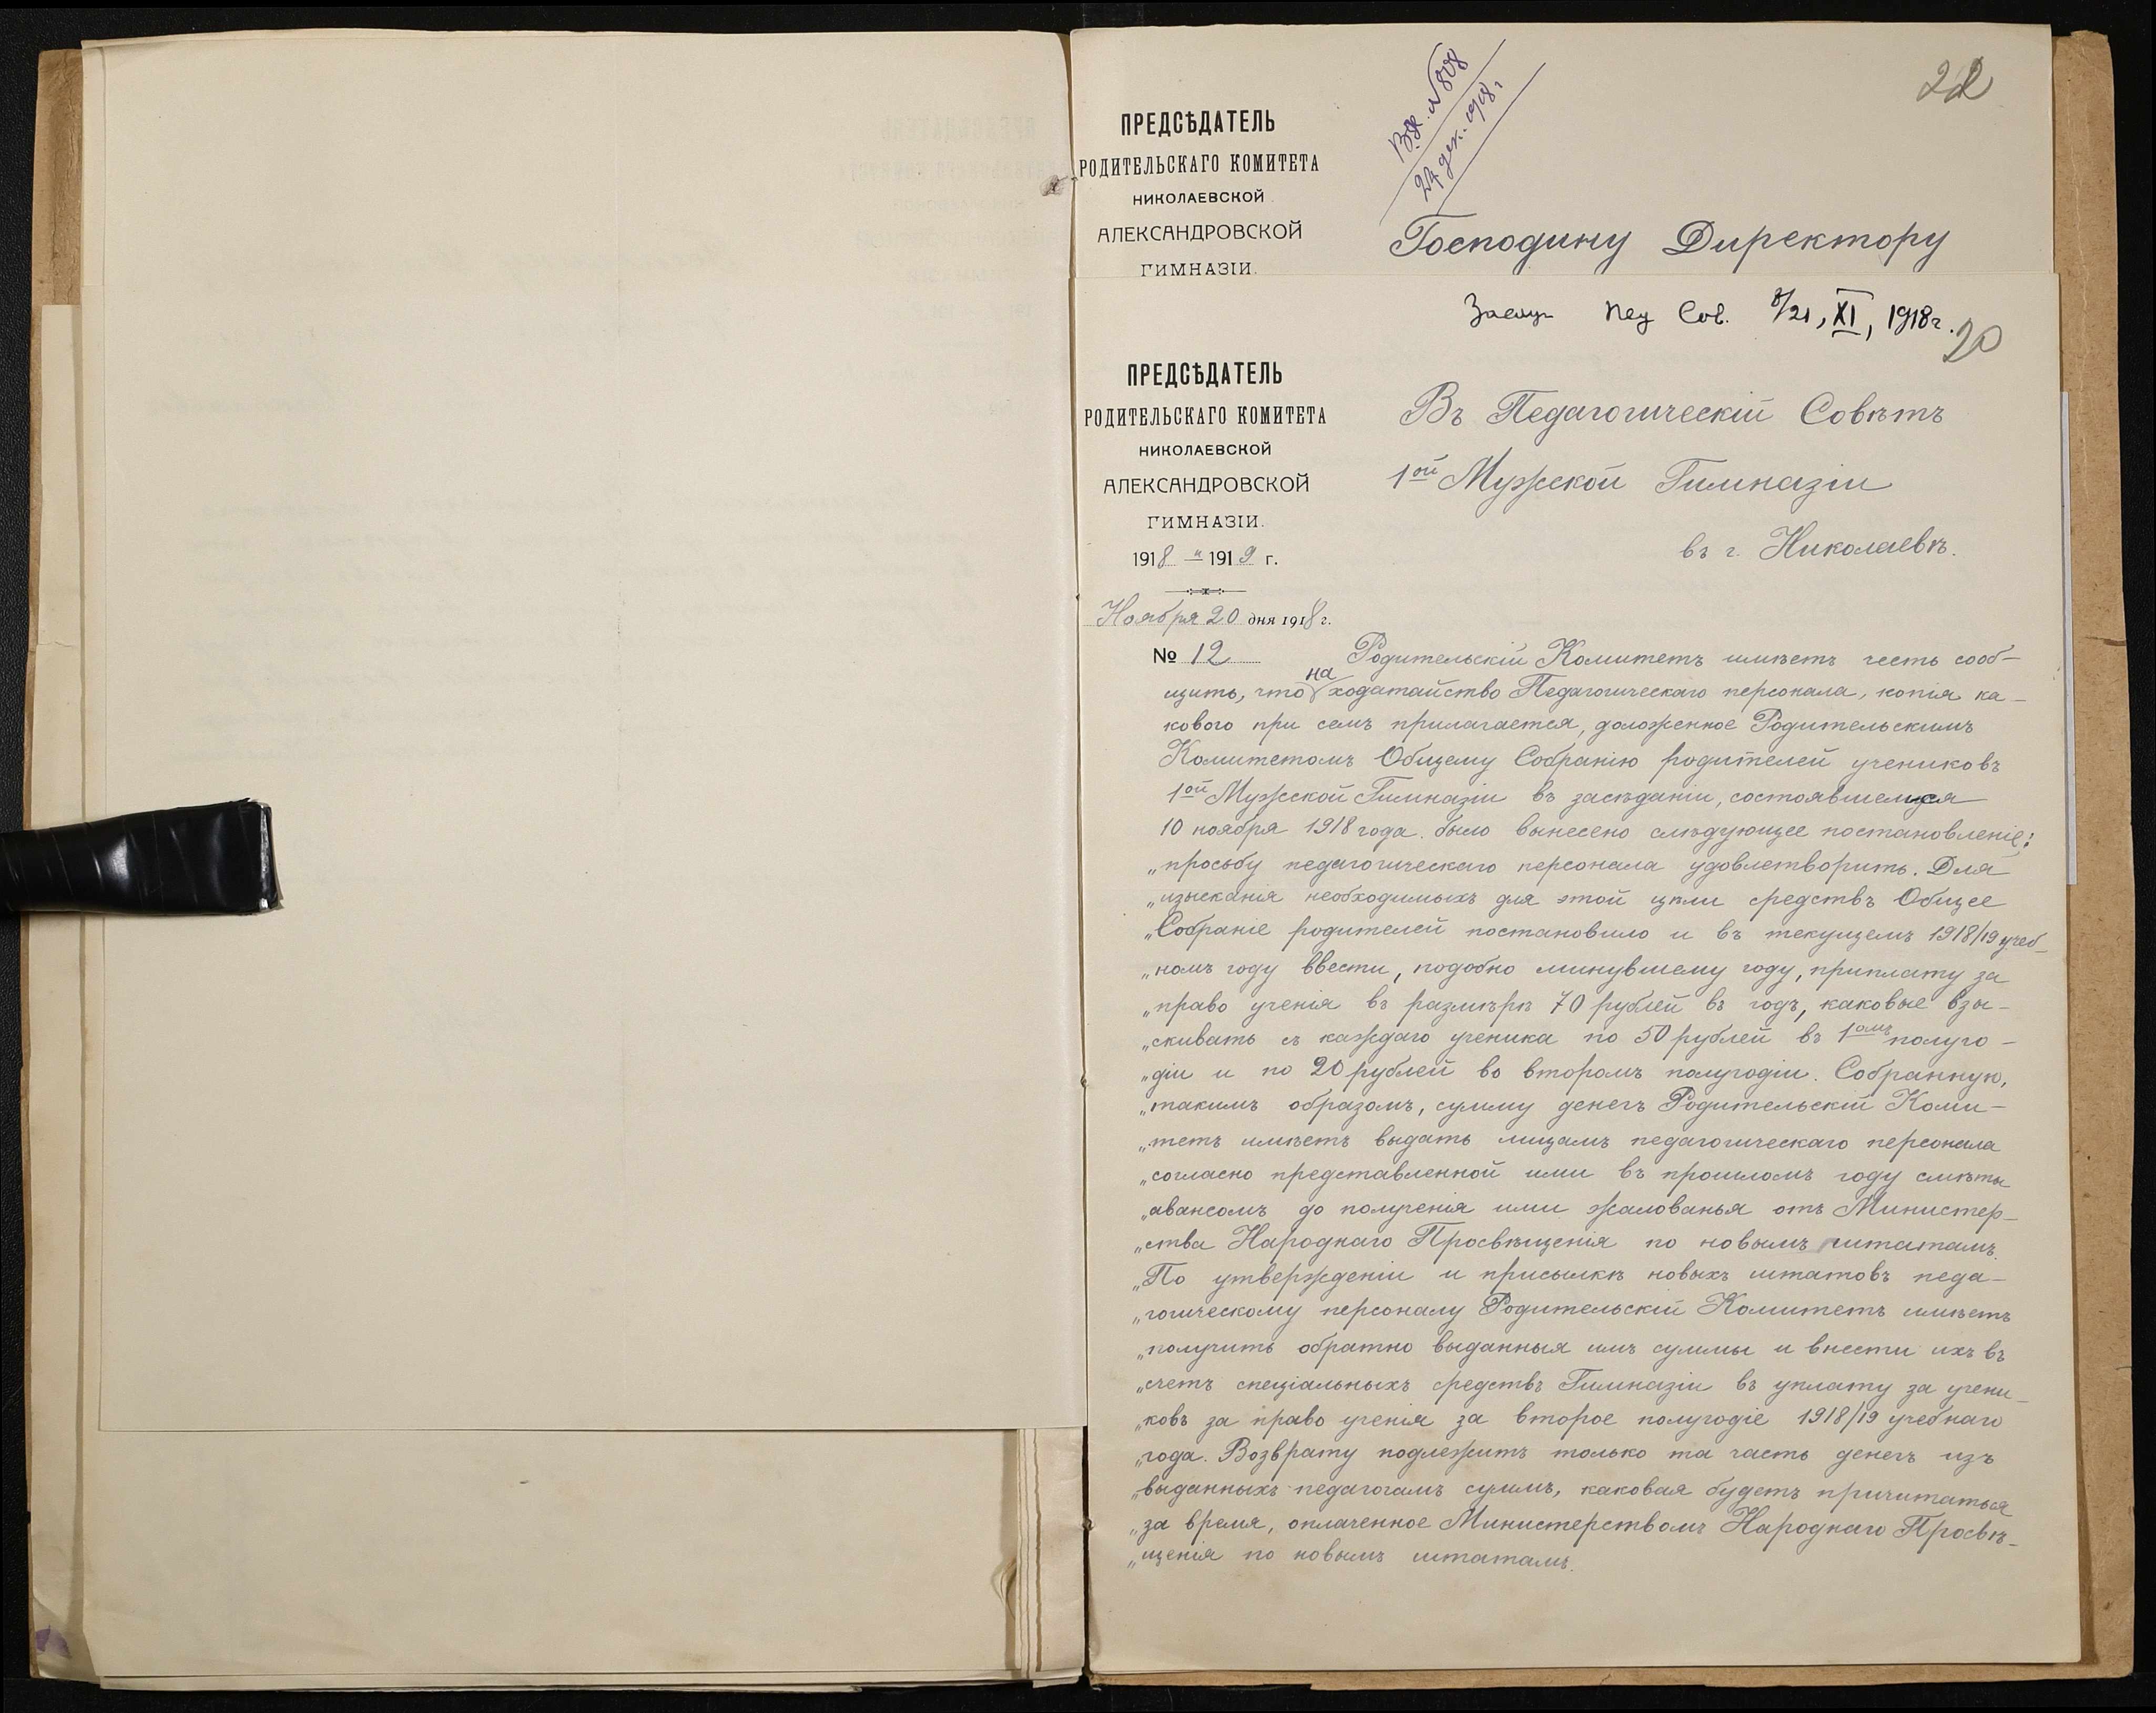 22
Вх. №808
24 дек. 1918 г
ПРЕДСѢДАТЕЛЬ
РОДИТЕЛЬСКАГО КОМИТЕТА
НИКОЛАЕВСКОЙ
АЛЕКСАНДРОВСКОЙ
ГИМНАЗІИ.
Господину Директору
Пед Сов. 8/21, XI, 1918 г.
20
ПРЕДСѢДАТЕЛЬ
РОДИТЕЛЬСКАГО КОМИТЕТА
НИКОЛАЕВСКОЙ
АЛЕКСАНДРОВСКОЙ
ГИМНАЗІИ.
1918 – 1919 г.
Ноября 20 дня 1918 г.
№ 12
Въ Педагогическій Совѣтъ
1ой Мужской Гимназіи
въ г. Николаевѣ.
Родительскій Комитетъ имѣетъ честь сооб-
щить, что на ходатайство Педагогическаго персонала, копія ка-
кового при семъ прилагается, доложенное Родительскимъ
Комитетомъ Общему Собранію родителей учениковъ
1ой Мужской Гимназіи въ засѣданіи, состоявшемся
10 ноября 1918 года. было вынесено слѣдующее постановленіе:
„просьбу педагогическаго персонала удовлетворить. Для
„изысканія необходимыхъ для этой цѣли средствъ Общее
„Собраніе родителей постановило и въ текущемъ 1918/19 учеб-
„номъ году ввести, подобно минувшему году, приплату за
„право ученія въ размѣрѣ 70 рублей въ годъ, каковые взы-
„скивать съ каждаго ученика по 50 рублей въ 1омъ полуго-
„діи и по 20 рублей во второмъ полугодіи. Собранную,
„такимъ образомъ, сумму денегъ Родительскій Коми-
„тетъ имѣетъ выдать лицамъ педагогическаго персонала
„согласно представленной ими въ прошломъ году смѣты
„авансомъ до полученія ими жалованья отъ Министер-
„ства Народнаго Просвѣщенія по новымъ штатамъ.
„По утвержденіи и присылкѣ новыхъ штатовъ педа-
„гогическому персоналу Родительскій Комитетъ имѣетъ
„получить обратно выданныя имъ суммы и внести ихъ въ
„счетъ спеціальныхъ средствъ Гимназіи въ уплату за учени-
„ковъ за право ученія за второе полугодіе 1918/19 учебнаго
„года. Возврату подлежитъ только та часть денегъ изъ
„выданныхъ педагогамъ суммъ, каковая будетъ причитаться
„за время, оплаченное Министерствомъ Народнаго Просвѣ-
„щенія по новымъ штатамъ.